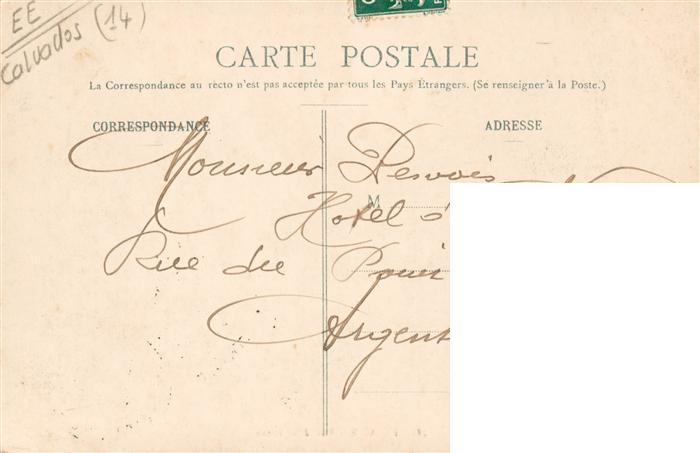 EE
Calvados (14)
CARTE POSTALE
La Correspondance au recto n'est pas acceptée par tous les Pays Étrangers. (Se renseigner à la Poste.)
CORRESPONDANCE
ADRESSE
Monsieur Desvois
M
Hotel
Rue du
Argent